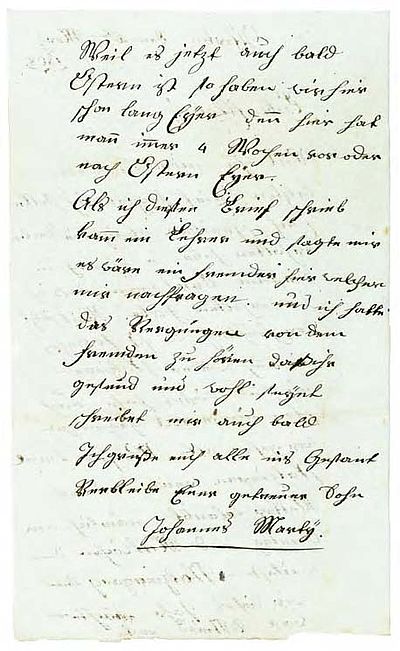 Weil es jetzt auch bald
Ostern ist so haben wir hier
schon lang Eÿer den̄ hier hat
man̄ im̄er 4 Wochen vor oder
nach Ostern Eÿer.
Als ich dießen Brief schrieb
kam̄ ein Lehrer und sagte mir
es wäre ein fremder hier welcher
mir nachfragen. und ich hatte
das Vergnügen von dem
fremden zu hören daß ihr
gesund und wohl seÿet
schreibet mir auch bald
Ich grüße euch alle ins Gesamt
Verbleibe Euer getreuer Sohn
Johannes Martÿ.